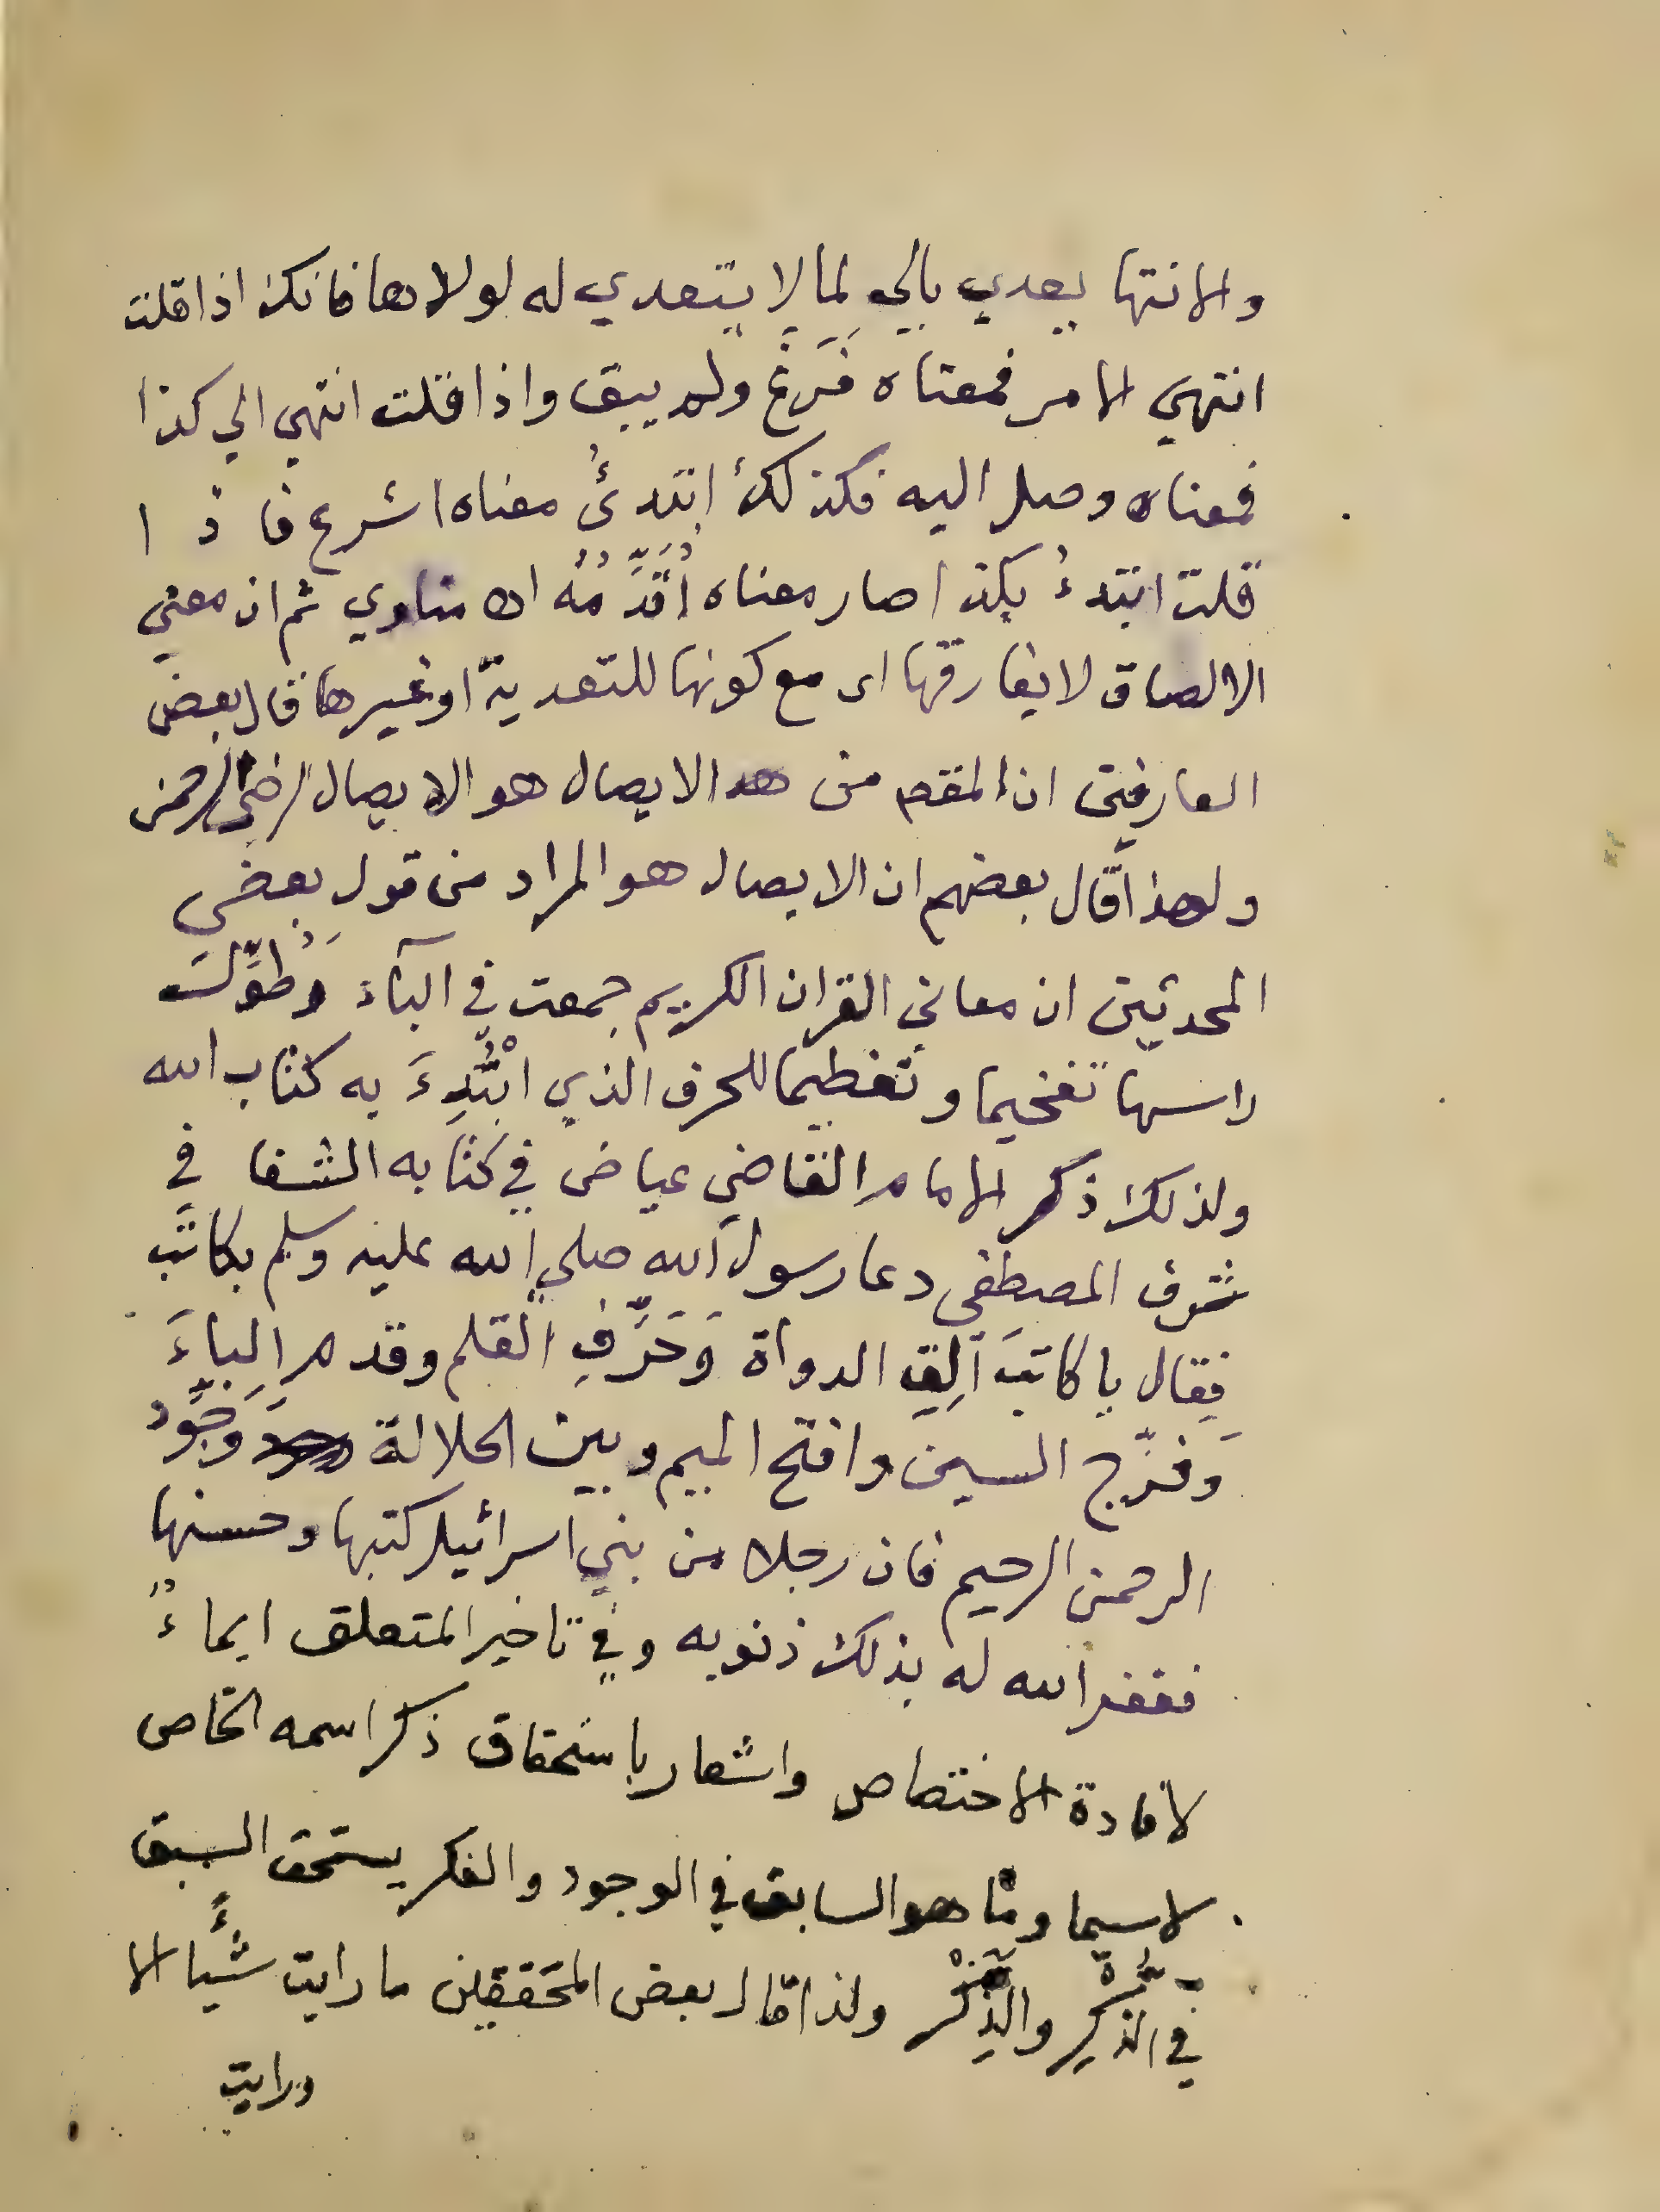 والانتها يعدي بالي لما لا يتعدي له لولاها فانك اذا قلت
انتهي الامر فمعناه فَرَغَ ولم يبق واذا قلت انتهي الي كذا
فمعناه وصل اليه فكذلك ابتدئُ معناه اشرع فاذا
قلت ابتدءُ بكذا صار معناه اُقَدِّمُهُ اه مناوي ثم ان معني
الالصاق لا يفارقها اى مع كونها للتعدية او غيرها قال بعض
العارفين ان المقصم من هذ الايصال هو الايصال الرحمن
ولهذا قال بعضهم ان الايصال هو المراد من قول بعض
المحدثين ان معاني القران الكريم جمعت في البآء وَطُوِّلت
راسها تفخيما وتعظيما للحرف الذي ابْتُدِءَ به كتاب الله
ولذلك ذكر الامام القاضي عياض في كتابه الشفا في
شرف المصطفى دعا رسول الله صلي الله عليه وسلم بكاتب
فقال يا كاتبَ اَلِقِ الدواة وَحَرِّفِ القلم وقدم الباءَ
وَفرِّج السين وافتح الميم وبين الجلالة وَجَوِّد
الرحمن الرحيم فان رجلا من بني اسرائيل كتبها وحسنها
فغفر الله له بذلك ذنوبه وفي تاخير المتعلق ايماءٌ
لافادة الاختصاص واشعار باستحقاق ذكر اسمه الخاص
لاسيما وما هو السابق في الوجود والفكر يستحق السبق
في الذُكرِ والذِكر ولذا قال بعض المحَققين ما رايت شيًا الا
ورايت